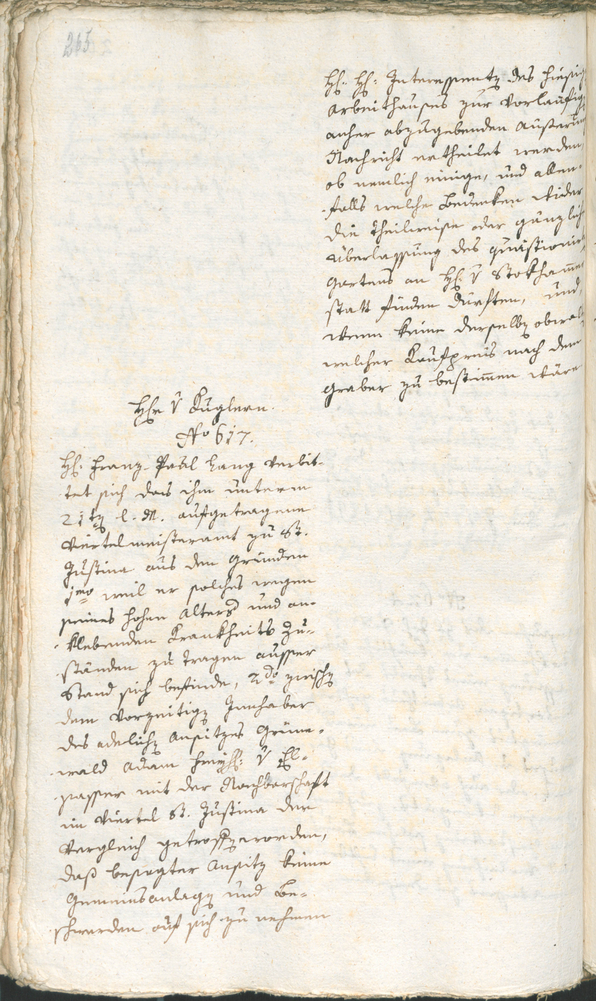 265
H: H: Interessenten des hiesig
Arbeithauses zur vorläufig
anher abzugebenden äußerung
Nachricht ertheilet werden
ob nemlich einige, und allen-
falls welche Bedenken wider
die theilweise oder gänzlich
Überlassung des quästionir
Gartens an H: v Stokhamer
statt finden dürften, und
wenn keine derselben obwal
welcher Kaufpreis nach dem
Graber zu bestimmen wäre
Hr v Kuglern.
No 617.
H: Franz Paul Lang verbit-
tet sich das ihm unterm
21ten l. M. aufgetragene
Viertelmeisteramt zu St.
Justina aus den Gründen
1mo weil er solches wegen
seines hohen Alters und an-
klebenden Krankheits Zu-
ständen zu tragen ausser
Stand sich befinde, 2do zwischen
dem vorzeitigen Innhaber
des adelichen Ansitzes Grüne-
wald Adam v El-
sasser mit der Nachbarschaft
im Viertel St. Justina der
Vergleich getroffen worden,
daß besagter Ansitz keine
Gemeinsanlagen und Be-
schwerden auf sich zu nehmen